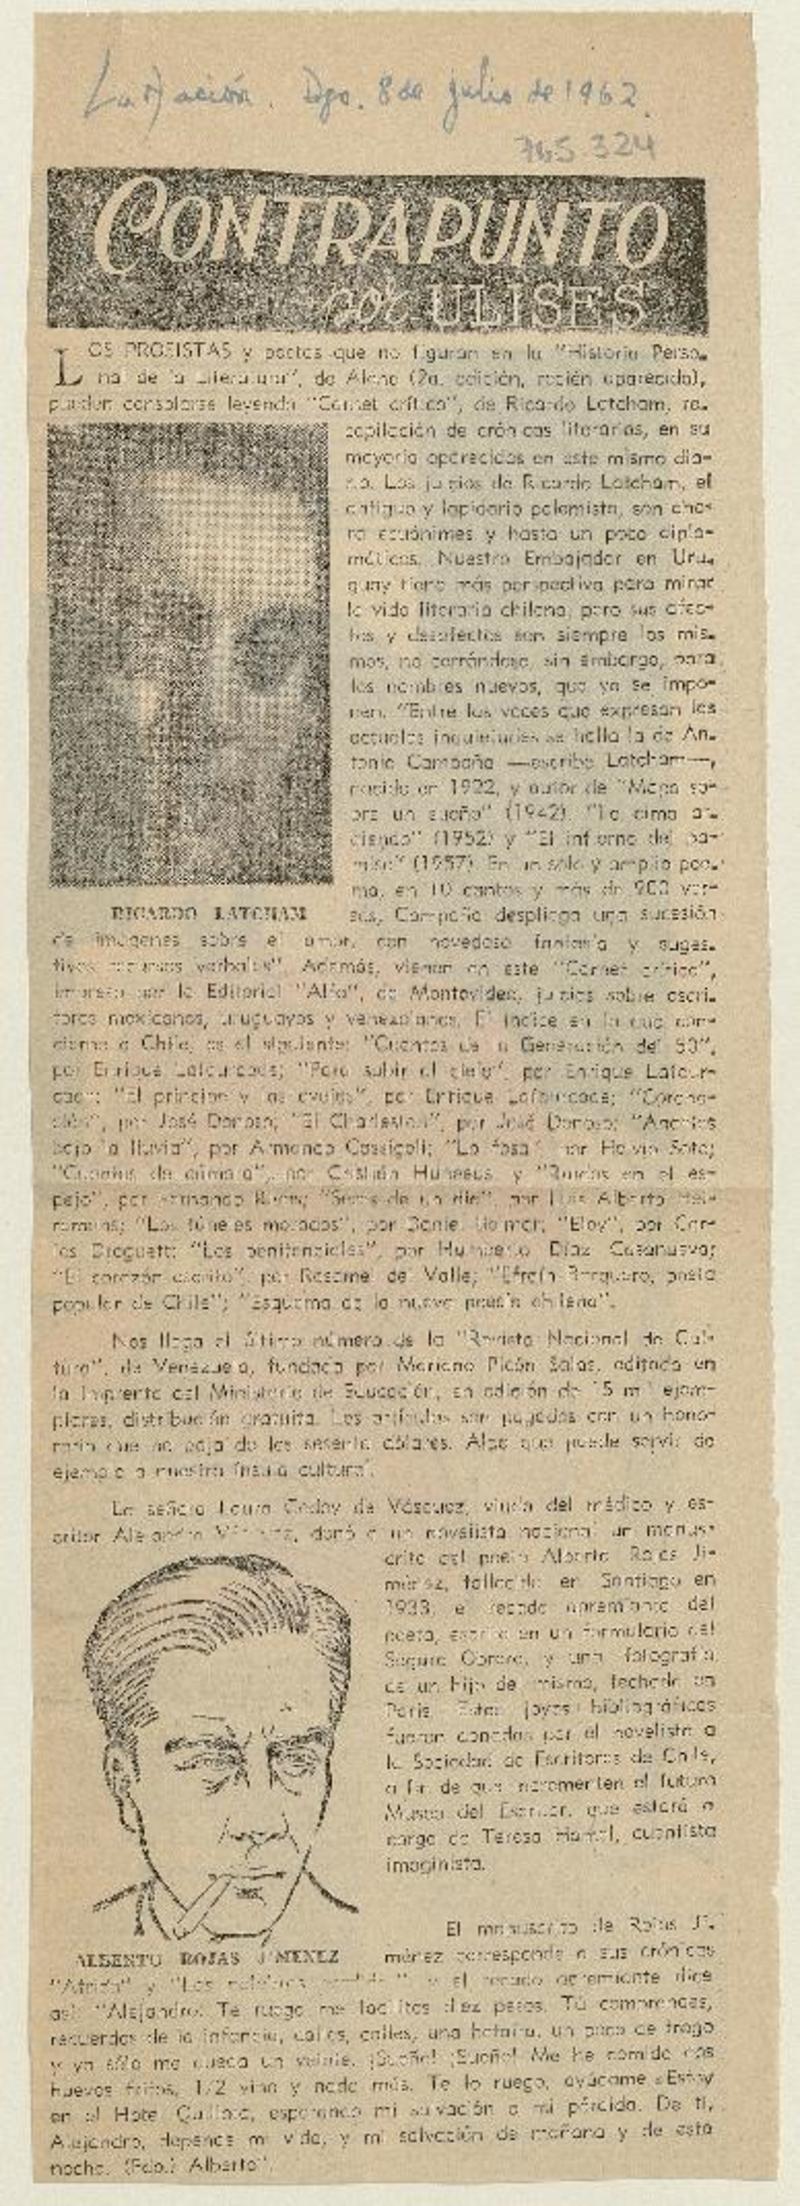 La Nación. Dgo. 8 de julio de 1962.
765.324
CONTRAPUNTO
por ULISES
LOS PROSISTAS y poetas que no figuran en la "Historia Perso-
nal de la Literatura", de Alone (2a. edición, recién aparecida),
pueden consolarse leyendo "Carnet crítico", de Ricardo Latcham, re-
copilación de crónicas literarias, en su
mayoría aparecidas en este mismo dia-
rio. Los juicios de Ricardo Latcham, el
antiguo y lapidario polemista, son aho-
ra ecuánimes y hasta un poco diplo-
máticos. Nuestro Embajador en Uru-
guay tiene más perspectiva para mirar
la vida literaria chilena, pero sus afec-
tos y desafectos son siempre los mis-
mos, no cerrándose, sin embargo, para
los nombres nuevos, que ya se impo-
nen. "Entre las voces que expresan las
actuales inquietudes se halla la de An-
tonio Campaña —escribe Latcham—,
nacido en 1922, y autor de "Mapa so-
bre un sueño" (1942), "La cima ar-
diendo" (1952) y "El infierno del pa-
raíso" (1957). En un solo y amplio poe-
ma, en 10 cantos y más de 900 ver-
sos, Campaña despliega una sucesión
RICARDO LATCHAM
de imágenes sobre el amor, con novedosa fantasía y suges-
tivos recursos verbales". Además, vienen en este "Carnet crítico",
impreso por la Editorial "Alfa", de Montevideo, juicios sobre escri-
tores mexicanos, uruguayos y venezolanos. El índice en lo que con-
cierne a Chile, es el siguiente: "Cuentos de la Generación del 50",
por Enrique Lafourcade; "Para subir al cielo", por Enrique Lafour-
cade; "El príncipe y las ovejas", por Enrique Lafourcade; "Corona-
ción", por José Donoso; "El Charleston", por José Donoso; "Angeles
bajo la lluvia", por Armando Cassigoli; "La fosa", por Helvio Soto;
"Cuentos de cámara", por Cristián Huneeus, y "Ruidos en el es-
pejo", por Fernando Rivas; "Seres de un día", por Luis Alberto Hei-
remans; "Los túneles morados", por Daniel Belmar; "Eloy", por Car-
los Droguett; "Los penitenciales", por Humberto Díaz Casanueva;
"El corazón escrito", por Rosamel del Valle; "Efraín Barquero, poeta
popular de Chile"; "Esquema de la nueva poesía chilena".
Nos llega el último número de la "Revista Nacional de Cul-
tura", de Venezuela, fundada por Mariano Picón Salas, editada en
la Imprenta del Ministerio de Educación, en edición de 15 mil ejem-
plares, distribución gratuita. Los artículos son pagados con un hono-
rario que no baja de los sesenta dólares. Algo que puede servir de
ejemplo a nuestra ínsula cultural.
La señora Laura Godoy de Vásquez, viuda del médico y es-
critor Alejandro Vásquez, donó a un novelista nacional un manus-
crito del poeta Alberto Rojas Ji-
ménez, fallecido en Santiago en
1933, el recado apremiante del
poeta, escrito en un formulario del
Seguro Obrero, y una fotografía
de un hijo del mismo, fechada en
París. Estas joyas bibliográficas
fueron donadas por el novelista a
la Sociedad de Escritores de Chile,
a fin de que incrementen el futuro
Museo del Escritor, que estará a
cargo de Teresa Hamel, cuentista
imaginista.
El manuscrito de Rojas Ji-
ALBERTO ROJAS JIMENEZ
ménez corresponde a sus crónicas
"Afrika" y "Las palabras " y el recado apremiante dice
así: "Alejandro: Te ruego me facilites diez pesos. Tú comprendes,
recuerdos de la infancia, calles, calles, una hetaira, un poco de trago
y ya sólo me queda un veinte. ¡Sueño! ¡Sueño! Me he comido dos
huevos fritos, 1/2 vino y nada más. Te lo ruego, ayúdame. Estoy
en el Hotel Quillota, esperando mi salvación o mi pérdida. De ti,
Alejandro, depende mi vida, y mi salvación de mañana y de esta
noche. (Fdo.) Alberto".